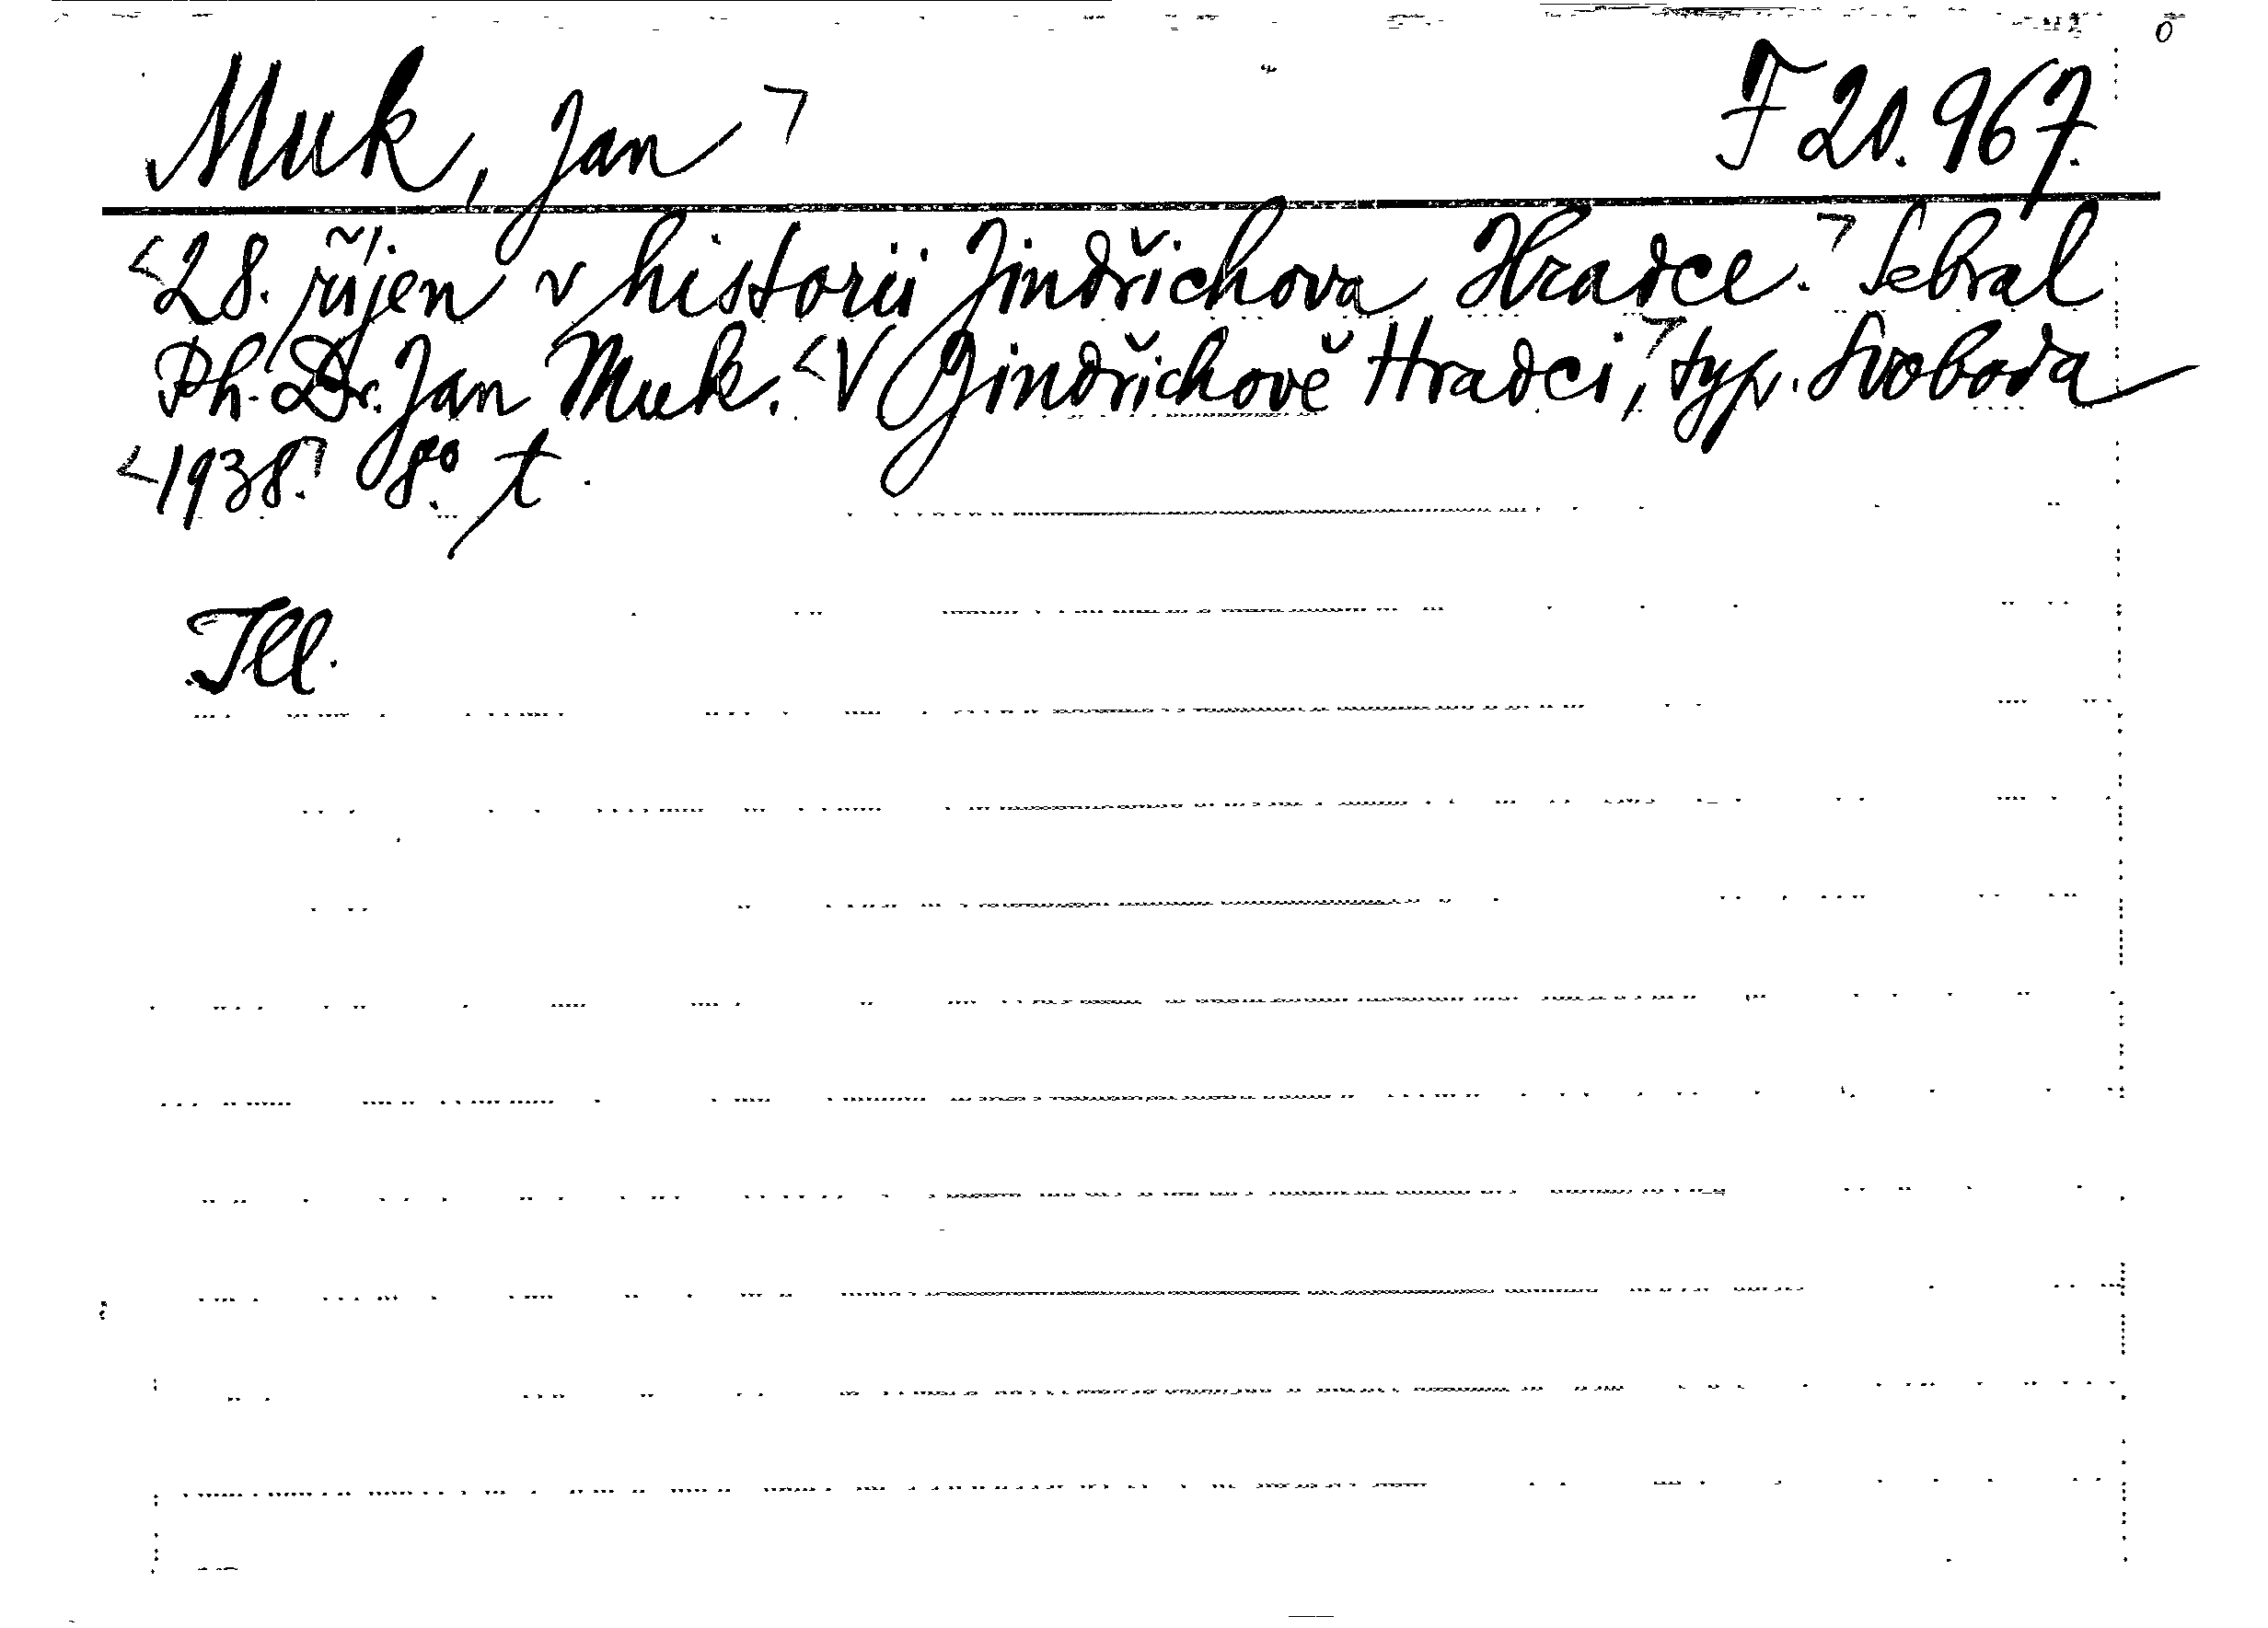 Muk, Jan ¬ F 20.967.
<28. říjen v historii Jindřichova Hradce.¬ Sebral
Ph. Dr. Jan Muk. <V Jindřichově Hradci,¬ typ. Svoboda
<1938.¬ 8°. t.
Ill.